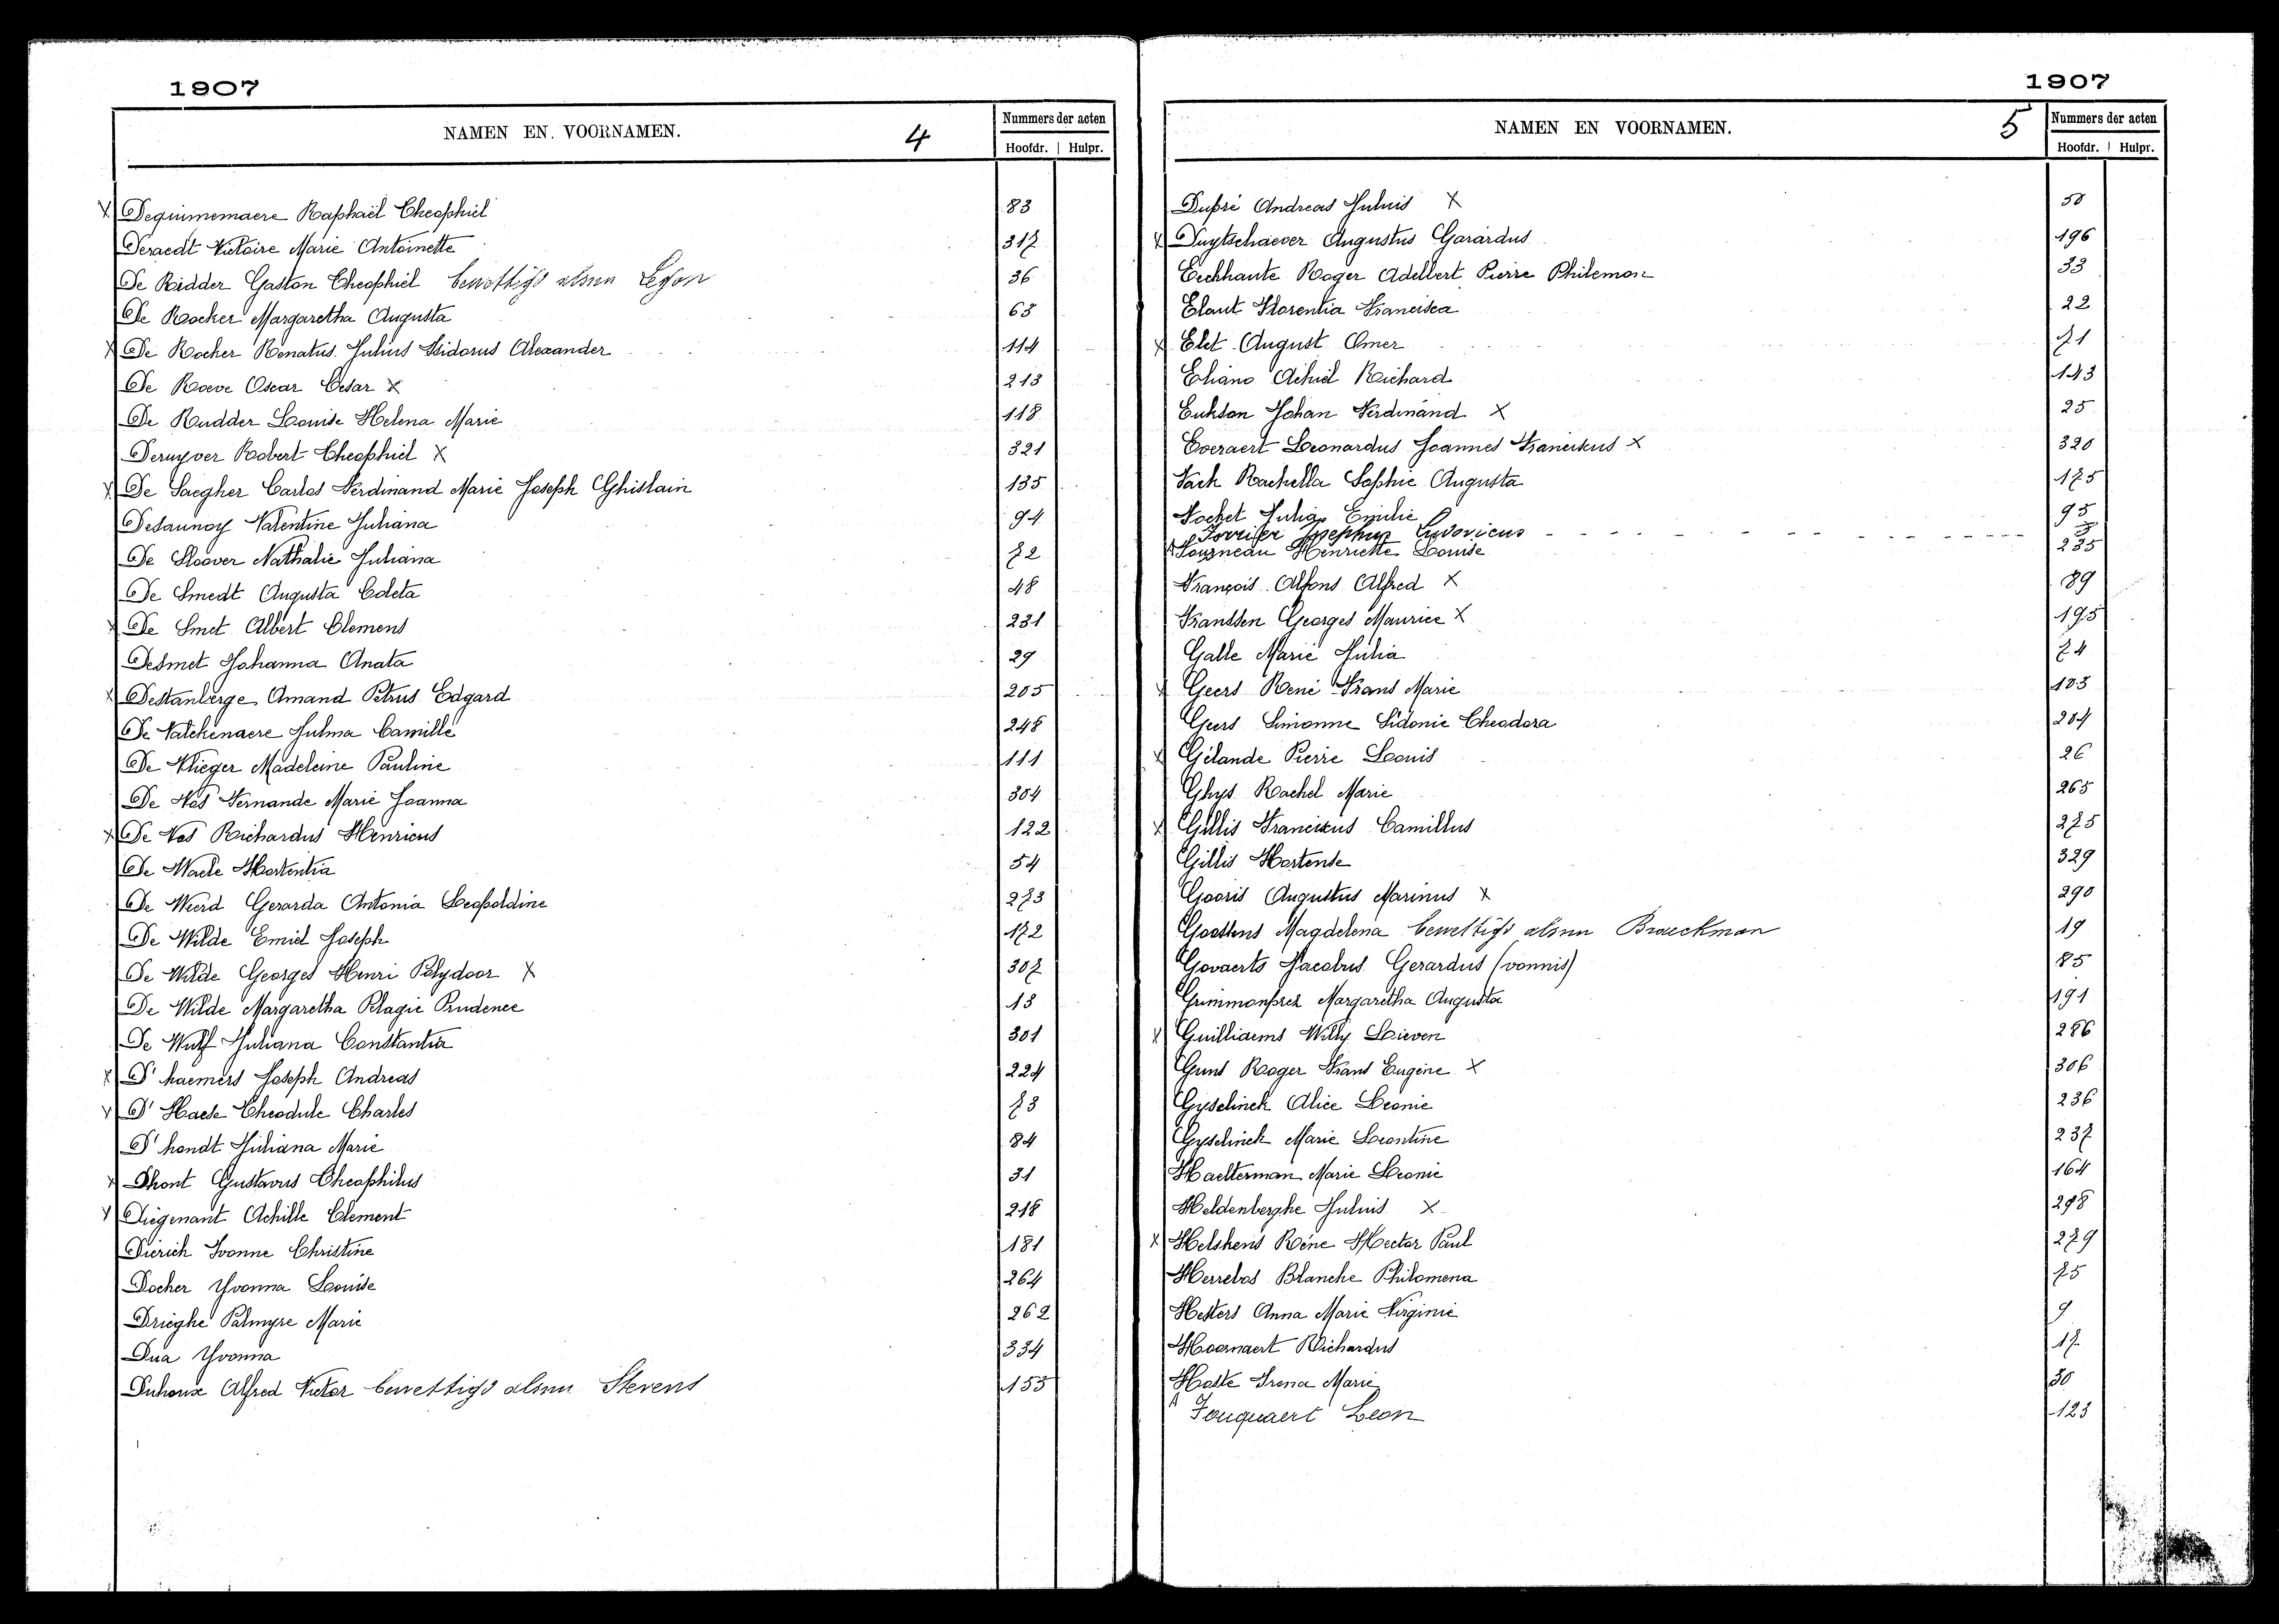 1907
NAMEN EN. VOORNAMEN. 4 Nummers der acten
Hoofdr. Hulpr.
X Dequinnemaere Raphaël Theophiel 83
Deraedt Victoire Marie Antoinette 317
De Ridder Gaston Theophiel bewettigd alsnu 36
De Rocker Margaretha Augusta 63
X De Rocker Renatus Julius Isidorus Alexander 114
De Roeve Oscar Cesar X 213
De Rudder Louise Helena Marie 118
Deruyver Robert Theophiel X 321
X De Saegher Carlos Ferdinand Marie Joseph Ghislain 135
Desaunoy Valentine Juliana 94
De Sloover Nathalie Juliana 72
De Smedt Augusta Coleta 48
X De Smet Albert Clemens 231
Desmet Johanna Anata 29
X Destanberge Amand Petrus Edgard 205
De Valckenaere Julma Camille 248
De Vlieger Madeleine Pauline 111
De Vos Fernande Marie Joanna 304
X De Vos Richardus Henricus 122
De Waele Hortentia 54
De Weerd Gerarda Antonia Leopoldine 273
De Wilde Emiel Joseph 172
De Wilde Georges Henri Polydoor X 307
De Wilde Margaretha Pelagie Prudence 13
De Wulf Juliana Constantia 301
X D'haemers Joseph Andreas 224
X D'Haese Theodule Charles 73
D'hondt Juliana Marie 84
X Dhont Gustavus Theophilus 31
X Diegenant Achille Clement 218
Dierich Ivonne Christine 181
Docher Yvonna Louise 264
Drieghe Palmyre Marie 262
Dua Yvonna 334
Duhoux Alfred Victor bewettigd alsnu Stevens 155
1907
NAMEN EN VOORNAMEN. 5 Nummers der acten
Hoofdr. Hulpr.
Dupré Andreas Julius X 50
X Duytschaever Augustus Gerardus 196
Eeckhaute Roger Adelbert Pierre Philemon 33
Elaut Florentia Francisca 22
X Elet August Omer 71
Eliano Achiel Richard 143
Eukson Johan Ferdinand X 25
Everaert Leonardus Joannes Franciscus X 320
Fack Rachella Sophie Augusta 175
Focket Julia Emilie 95
Forrifer Josephus Ludovicus
Fourneau Henriette Louise 235
François Alfons Alfred X 89
Franssen Georges Maurice X 195
Galle Marie Julia 74
X Geers René Frans Marie 103
Geers Simonne Sidonie Theodora 204
X Gélande Pierre Louis 26
Ghys Rachel Marie 265
X Gillis Franciscus Camillus 275
Gillis Hortense 329
Gooris Augustus Marinus X 290
Goossens Magdelena bewettigd alsnu Braeckman 19
Govaerts Jacobus Gerardus (vonnis) 85
Grimmonprez Margaretha Augusta 191
X Guilliaems Willy Lieven 286
Guns Roger Frans Eugène X 306
Gyselinck Alice Leonie 236
Gyselinck Marie Leontine 237
Haelterman Marie Leonie 164
Heldenberghe Julius X 298
X Helskens Réne Hector Paul 279
Herrebos Blanche Philomena 75
Hesters Anna Marie Virginie 9
Hoornaert Richardus 17
Hoste Irena Marie 30
Fouquaert Leon 123